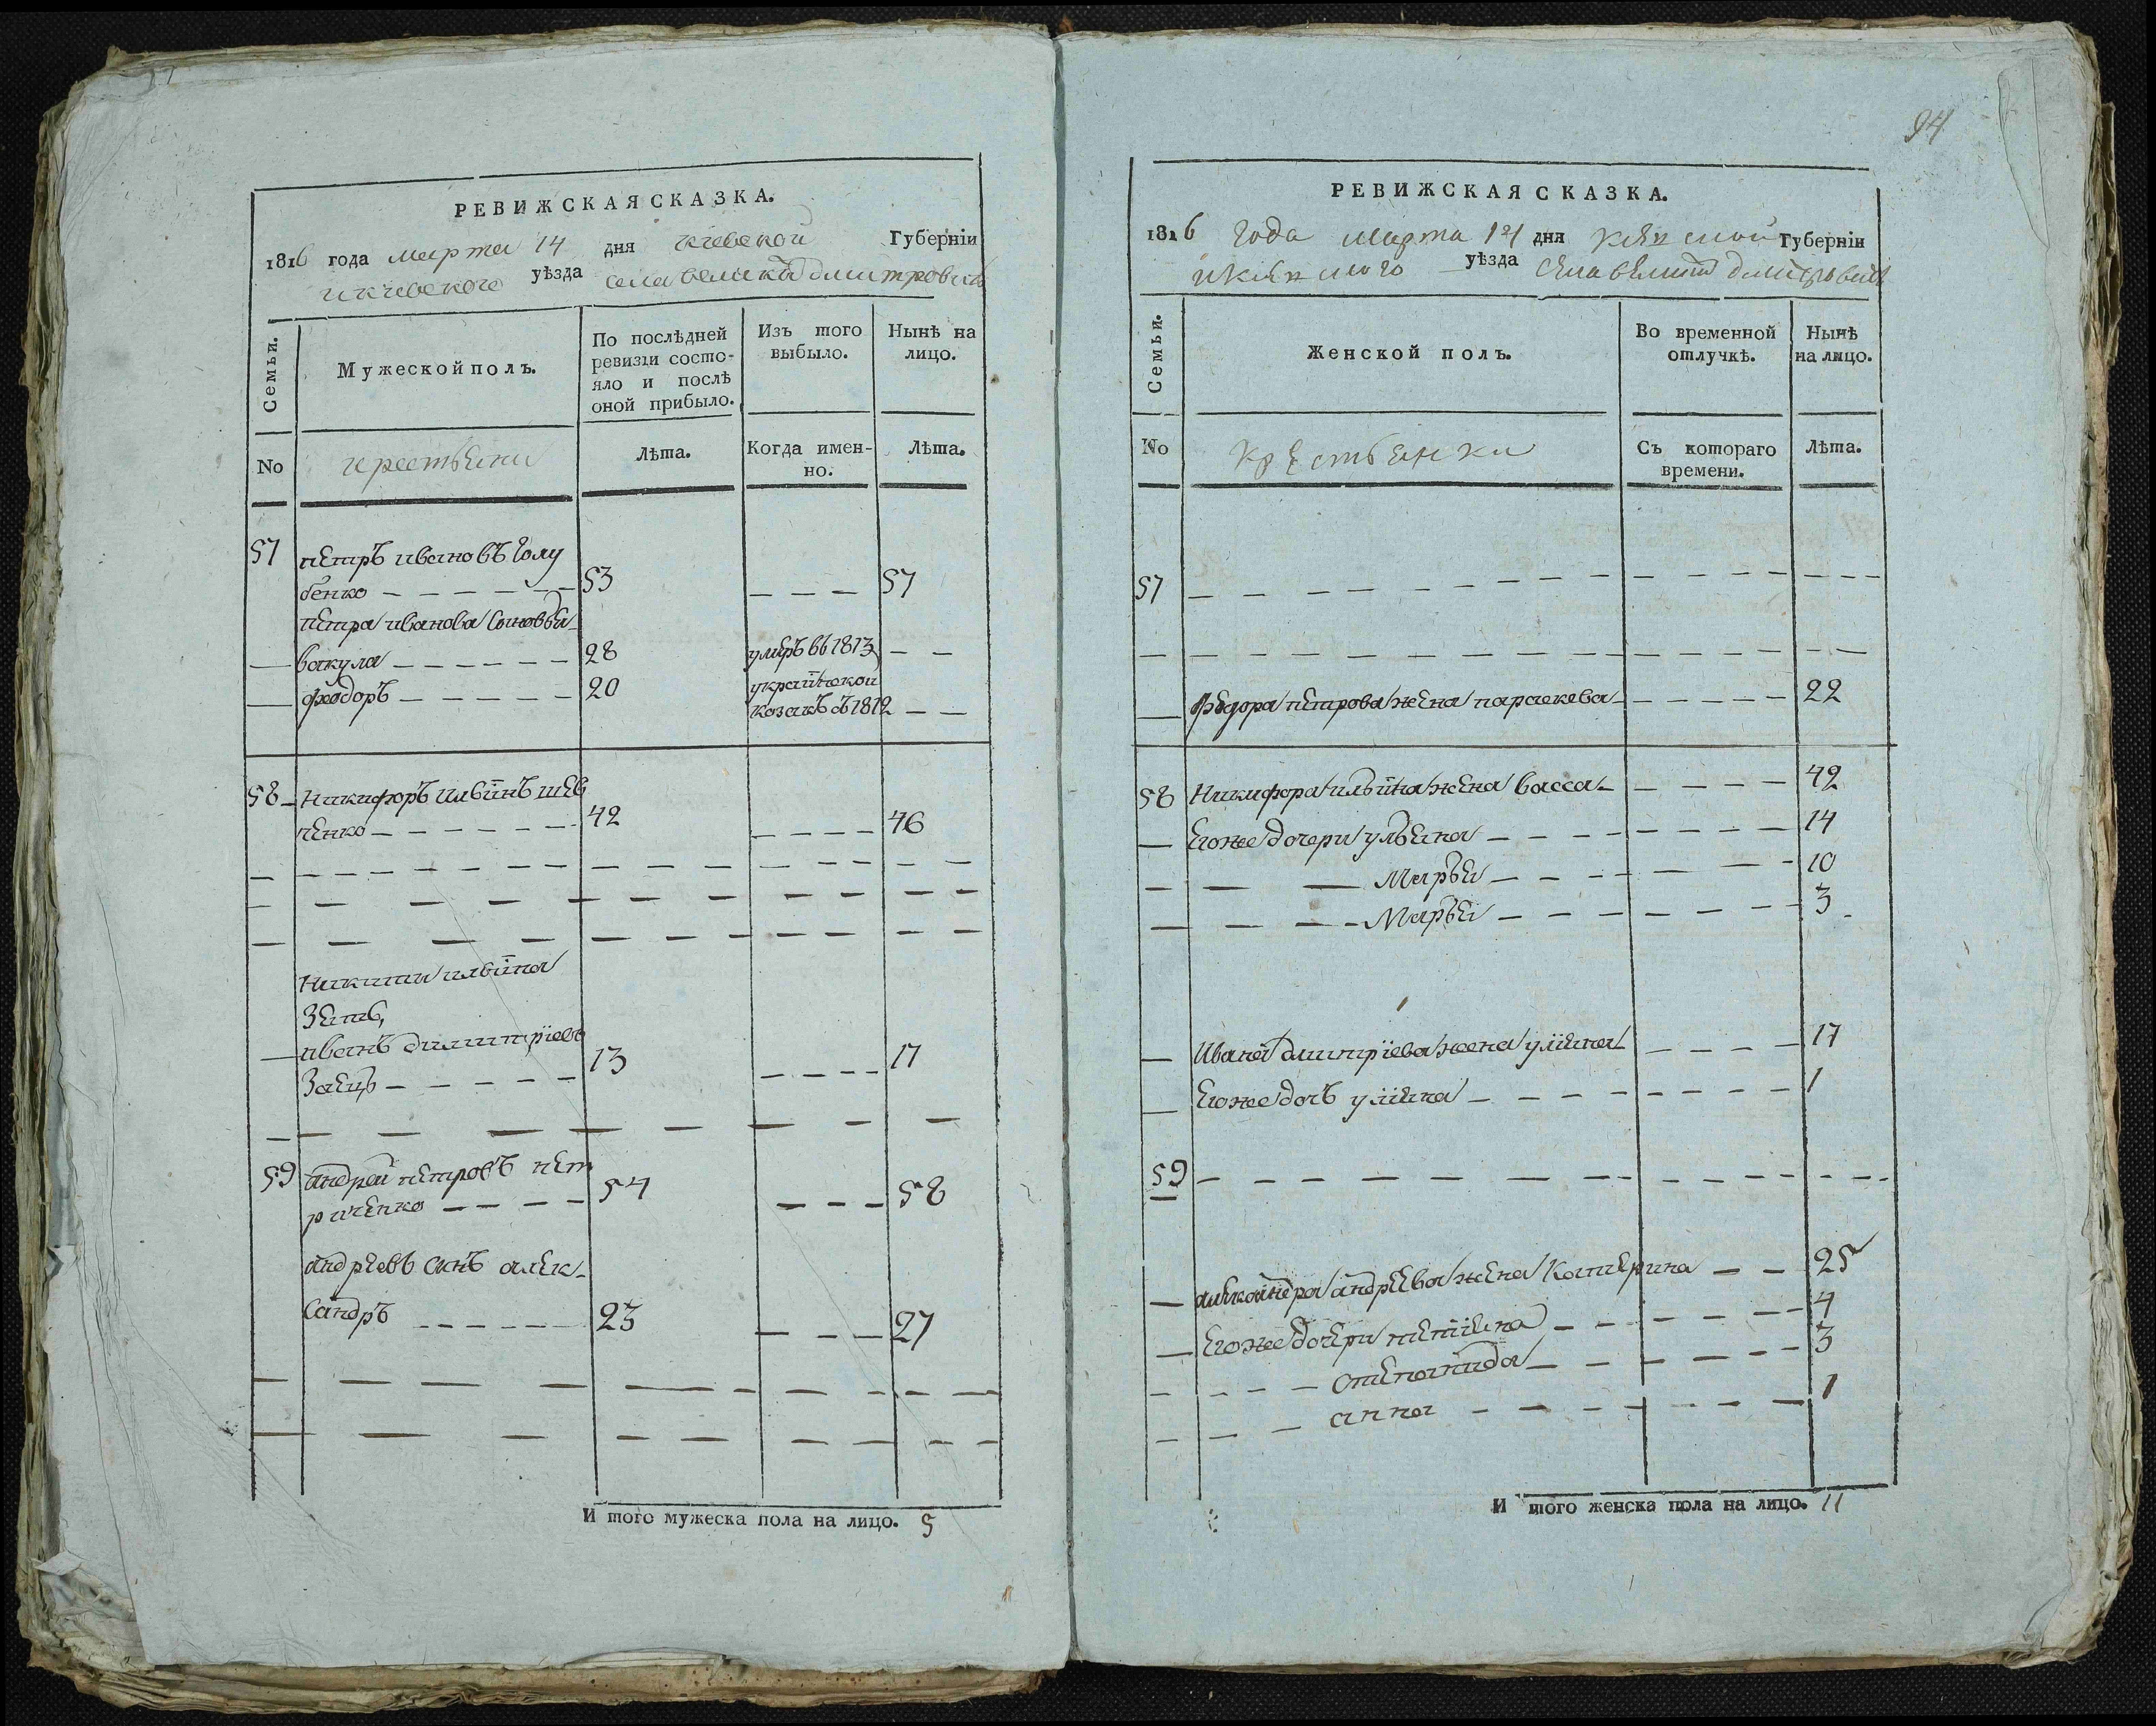 РЕВИЖСКАЯ СКАЗКА.
1816 года марта 14 дня киевской Губерніи
и киевского уѣзда села великы дмитровичь
Семьи.
Мужеской полъ.
По послѣдней ревизіи состо-
яло и послѣ
оной прибыло.
Изъ того
выбыло.
Нынѣ на
лицо.
No
крестьяни
Лѣта.
Когда имен-
но.
Лѣта.
57 петръ ивановъ голу
бенко 53 57
петра иванова сыновья
вакула 28 умеръ въ 1813
феодоръ 20 украинской
козакъ въ 1812
58 Никифоръ ильинъ шев
ченко 42 46
Никиты ильина
Зять,
иванъ димитріевъ
Заецъ 13 17
59 андрей петровъ пет
риченко 54 58
андреевъ сынъ алек-
сандръ 23 27
И того мужеска пола на лицо. 5
94
РЕВИЖСКАЯ СКАЗКА.
1816 года марта 14 дня киевской Губерніи
и киевского уѣзда села великы дмитровичь
Семьи.
Женской полъ.
Во временной
отлучкѣ.
Нынѣ
на лицо.
No
Крестьянки
Съ котораго
времени.
Лѣта.
57
Федора петрова жена параскева 22
58 Никифора ильина жена васса 42
Егоже дочери ульяна 14
Марья 10
Марья 3
Ивана дмитріева жена уліяна 17
Егоже дочь уліяна 1
59
александра андреева жена Катерина 25
Егоже дочери тетіяна 4
степанида 3
анна 1
И того женска пола на лицо. 11